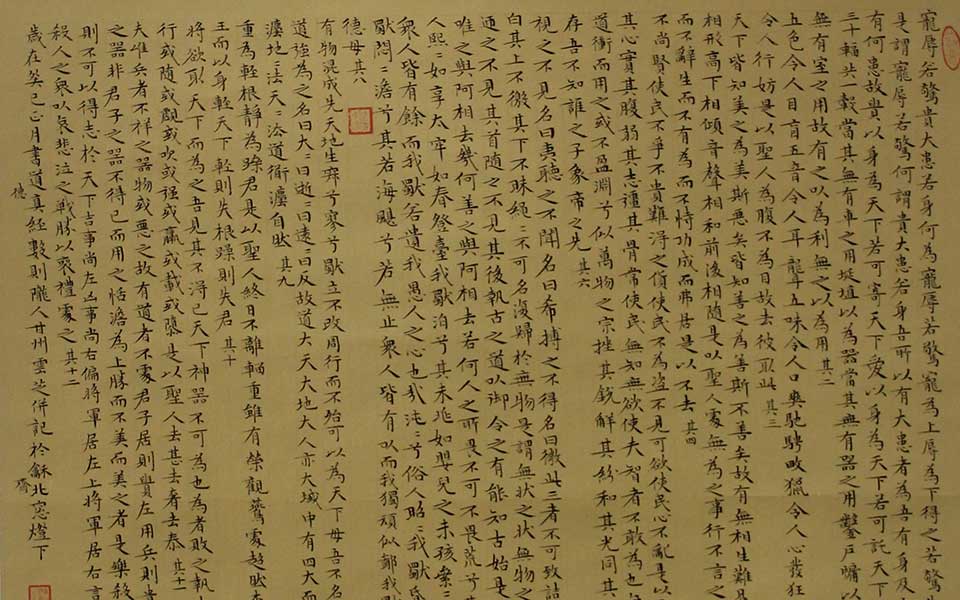 寵辱若驚貴大患若身何為寵辱若驚寵為上辱為下得之若驚
是謂寵辱若驚何謂貴大患若身吾所以有大患者為吾有身及
有何患故貴以身為天下若可寄天下愛以身為天下若可託天下
三十輻共一轂當其無有車之用埏埴以為器當其無有器之用鑿戶牖以
無有室之用故有之以為利無之以為用 其二
五色令人目盲五音令人耳聾五味令人口爽馳騁畋獵令人心發狂
令人行妨是以聖人為腹不為目故去彼取此 其三
天下皆知美之為美斯惡矣皆知善之為善斯不善矣故有無相生難
相形高下相傾音聲相和前後相隨是以聖人處無為之事行不言之
而不辭生而不有為而不恃功成而弗居是以不去 其四
不尚賢使民不爭不貴難得之貨使民不為盜不見可欲使民心不亂是以
其心實其腹弱其志彊其骨常使民無知無欲使夫智者不敢為也
道衝而用之或不盈淵兮似萬物之宗挫其銳解其紛和其光同其
存吾不知誰之子象帝之先 其六
視之不見名曰夷聽之不聞名曰希搏之不得名曰微此三者不可致詰
白其上不徼其下不昧繩〻不可名復歸於無物是謂無狀之狀無物之
迎之不見其首隨之不見其後執古之道以御今之有能知古始是
唯之與阿相去幾何善之與阿相去若何人之所畏不可不畏荒兮其
人熙〻如享太牢如春登臺我獨泊兮其未兆如嬰兒之未孩儽〻
衆人皆有餘而我獨若遺我愚人之心也哉沌〻兮俗人昭〻我獨
獨悶〻澹兮其若海飂兮若無止衆人皆有以而我獨頑似鄙我
德毋其六
有物混成先天地生寂兮寥獨立不改周行而不殆可以為天下母吾不名
道強為之名曰大〻曰逝〻曰遠〻曰反故道大天大地大人亦大域中有四大而
灋地〻灋天〻灋道〻灋自然 其九
重為輕根靜為躁君是以聖人終日不離輜重雖有榮觀燕處超然
王而以身輕天下輕則失根躁則失君 其十
將欲取天下而為之吾見其不得已天下神器不可為也為者敗之執
行或隨或歔或吹或强或羸或載或隳是以聖人去甚去奢去泰 其十一
夫唯兵者不祥之器物或惡之故有道者不處君子居則貴左用兵則貴
之器非君子之器不得已而用之恬澹為上勝而不美而美之者是樂殺
則不可以得志於天下吉事尚左凶事尚右偏將軍居左上將軍居右言
殺人之衆以哀悲泣之戰勝以喪禮處之 其十二
歲在癸巳正月書道真經數則隴人甘州雲之併記於龢北窓燈下